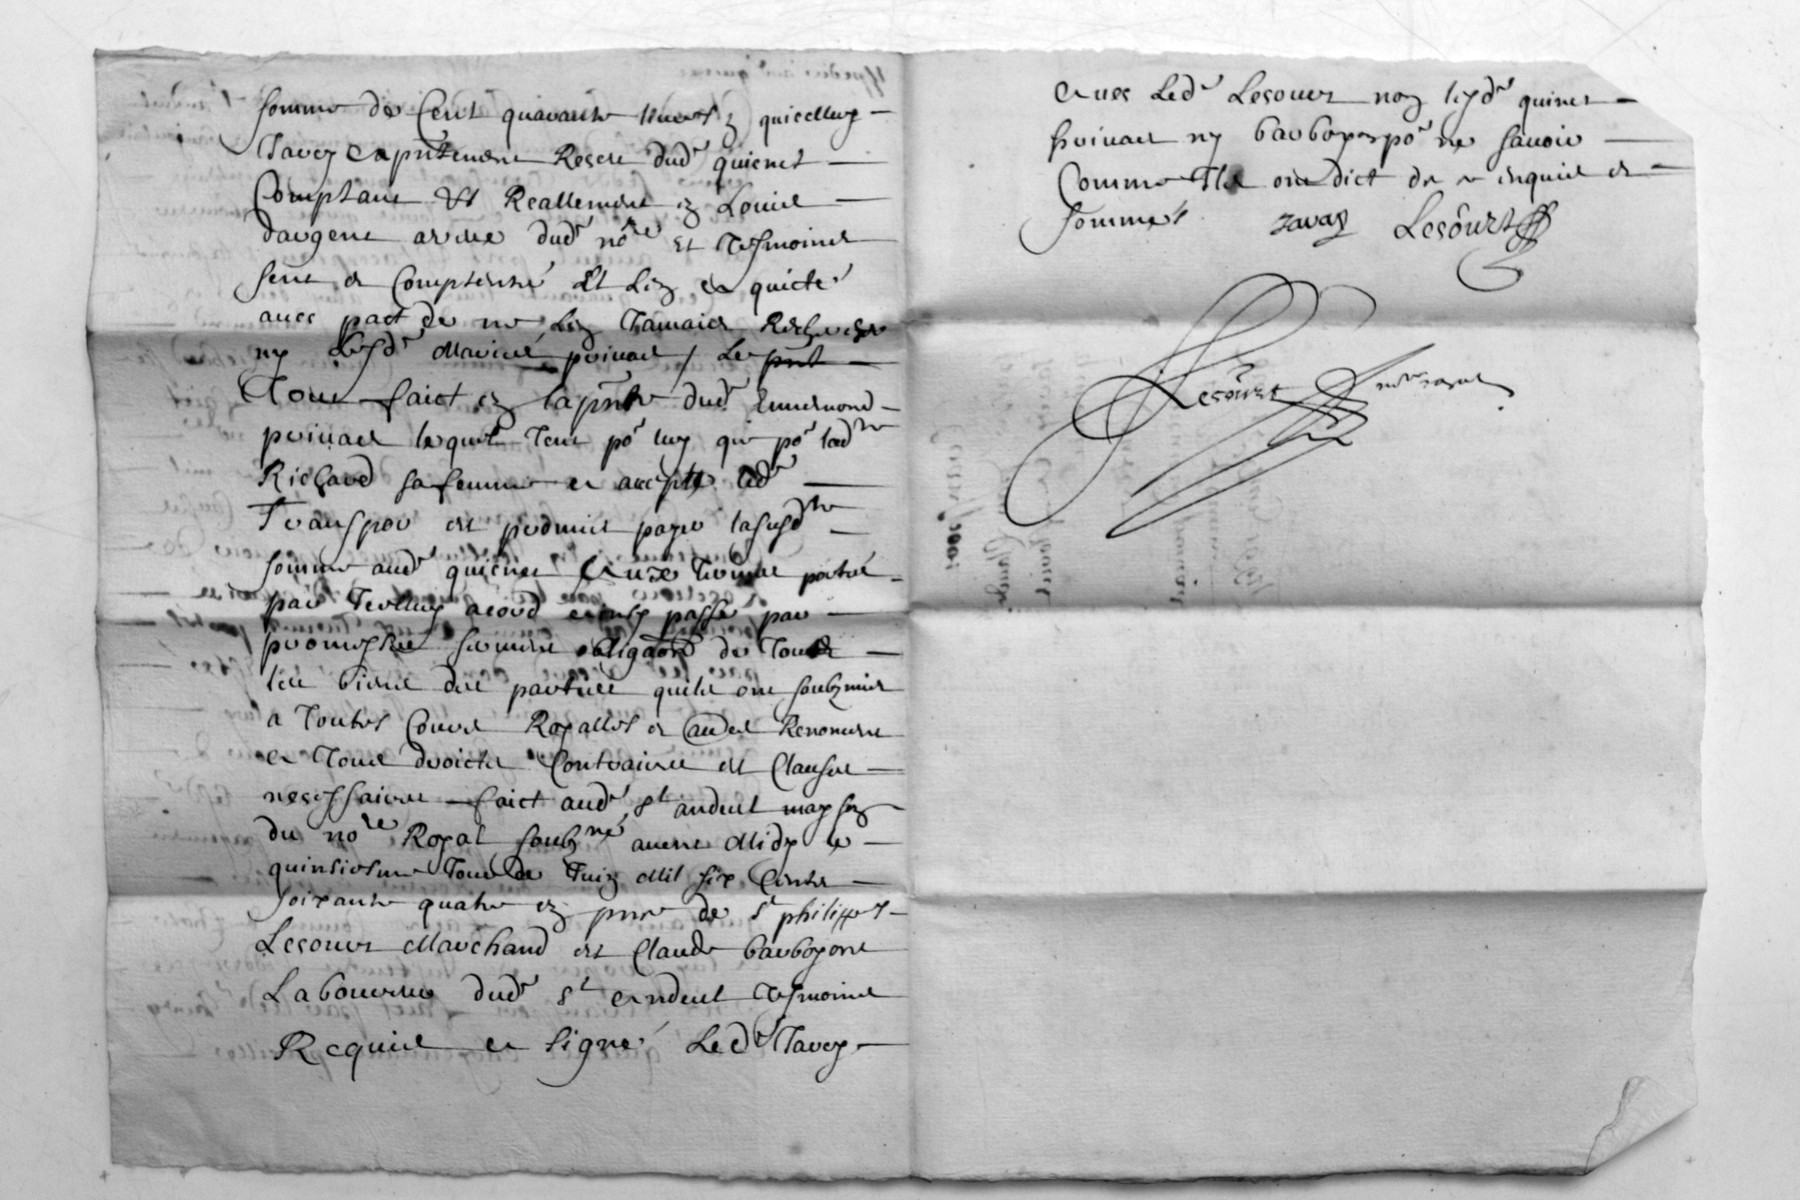 somme de Cent quarante livres q quicelluy
Javey a pntement Reseu dudt quienet
Comptant Et Reallement en Louis
dargent a veue dudt nore Et tesmoins
sent est Compteinté Et len a quicté
avec pact de ne len Jamais Rechercher
ny lesdt Mariés privas / Le pnt
Tout faict en la pnce dudt Ennemond
privas lequel tant por luy que por ladte
Richard sa femme a accepté ledt
Transpor et promis payer lasusdte
somme audt quienet aux termes portés
par Icelluy acord ainsy passé par
promesse serment obligaon de tous
les biens des parties quils ont soubzmis
a toutes Cours Royalles et aues Renoncent
a tous droicts Contraires et Clauses
nesessaires faict audt St andeul mayson
du nore Royal soubzné avant Midy le
quinsiesme Jour de Juin Mil six Cents
soixante quatre en pnce de sr philippes
Lesourt Marchand et Claude barboyont
Laboureur dudt St andeul tesmoins
Requis a signé Ledt Javey
Avec Ledt Lesourt non lesdt quinet
privas ny barboyon por ne savoir
Comme Ils ont dict de ce enquis et
sommés Javay Lesourt
Lesourt nore royal